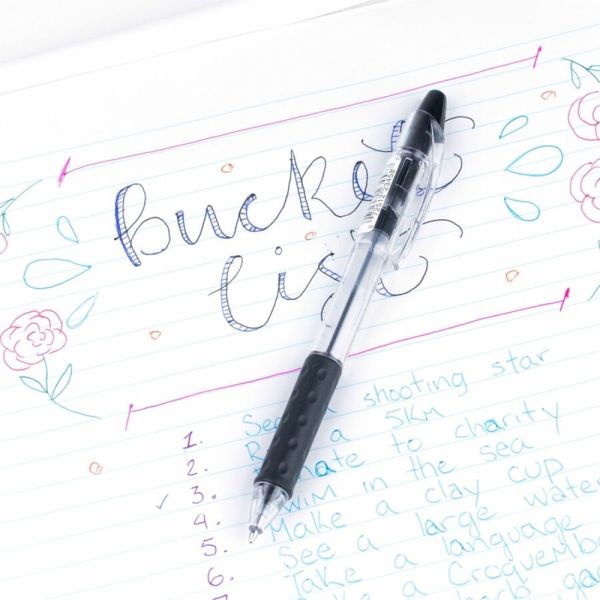 Bucket
List
1. See a shooting star
2. Run a 5KM
✓ 3. Donate to charity
4. Swim in the sea
5. Make a clay cup
6. See a large water
7. Take a language
Make a Croquembo
herb